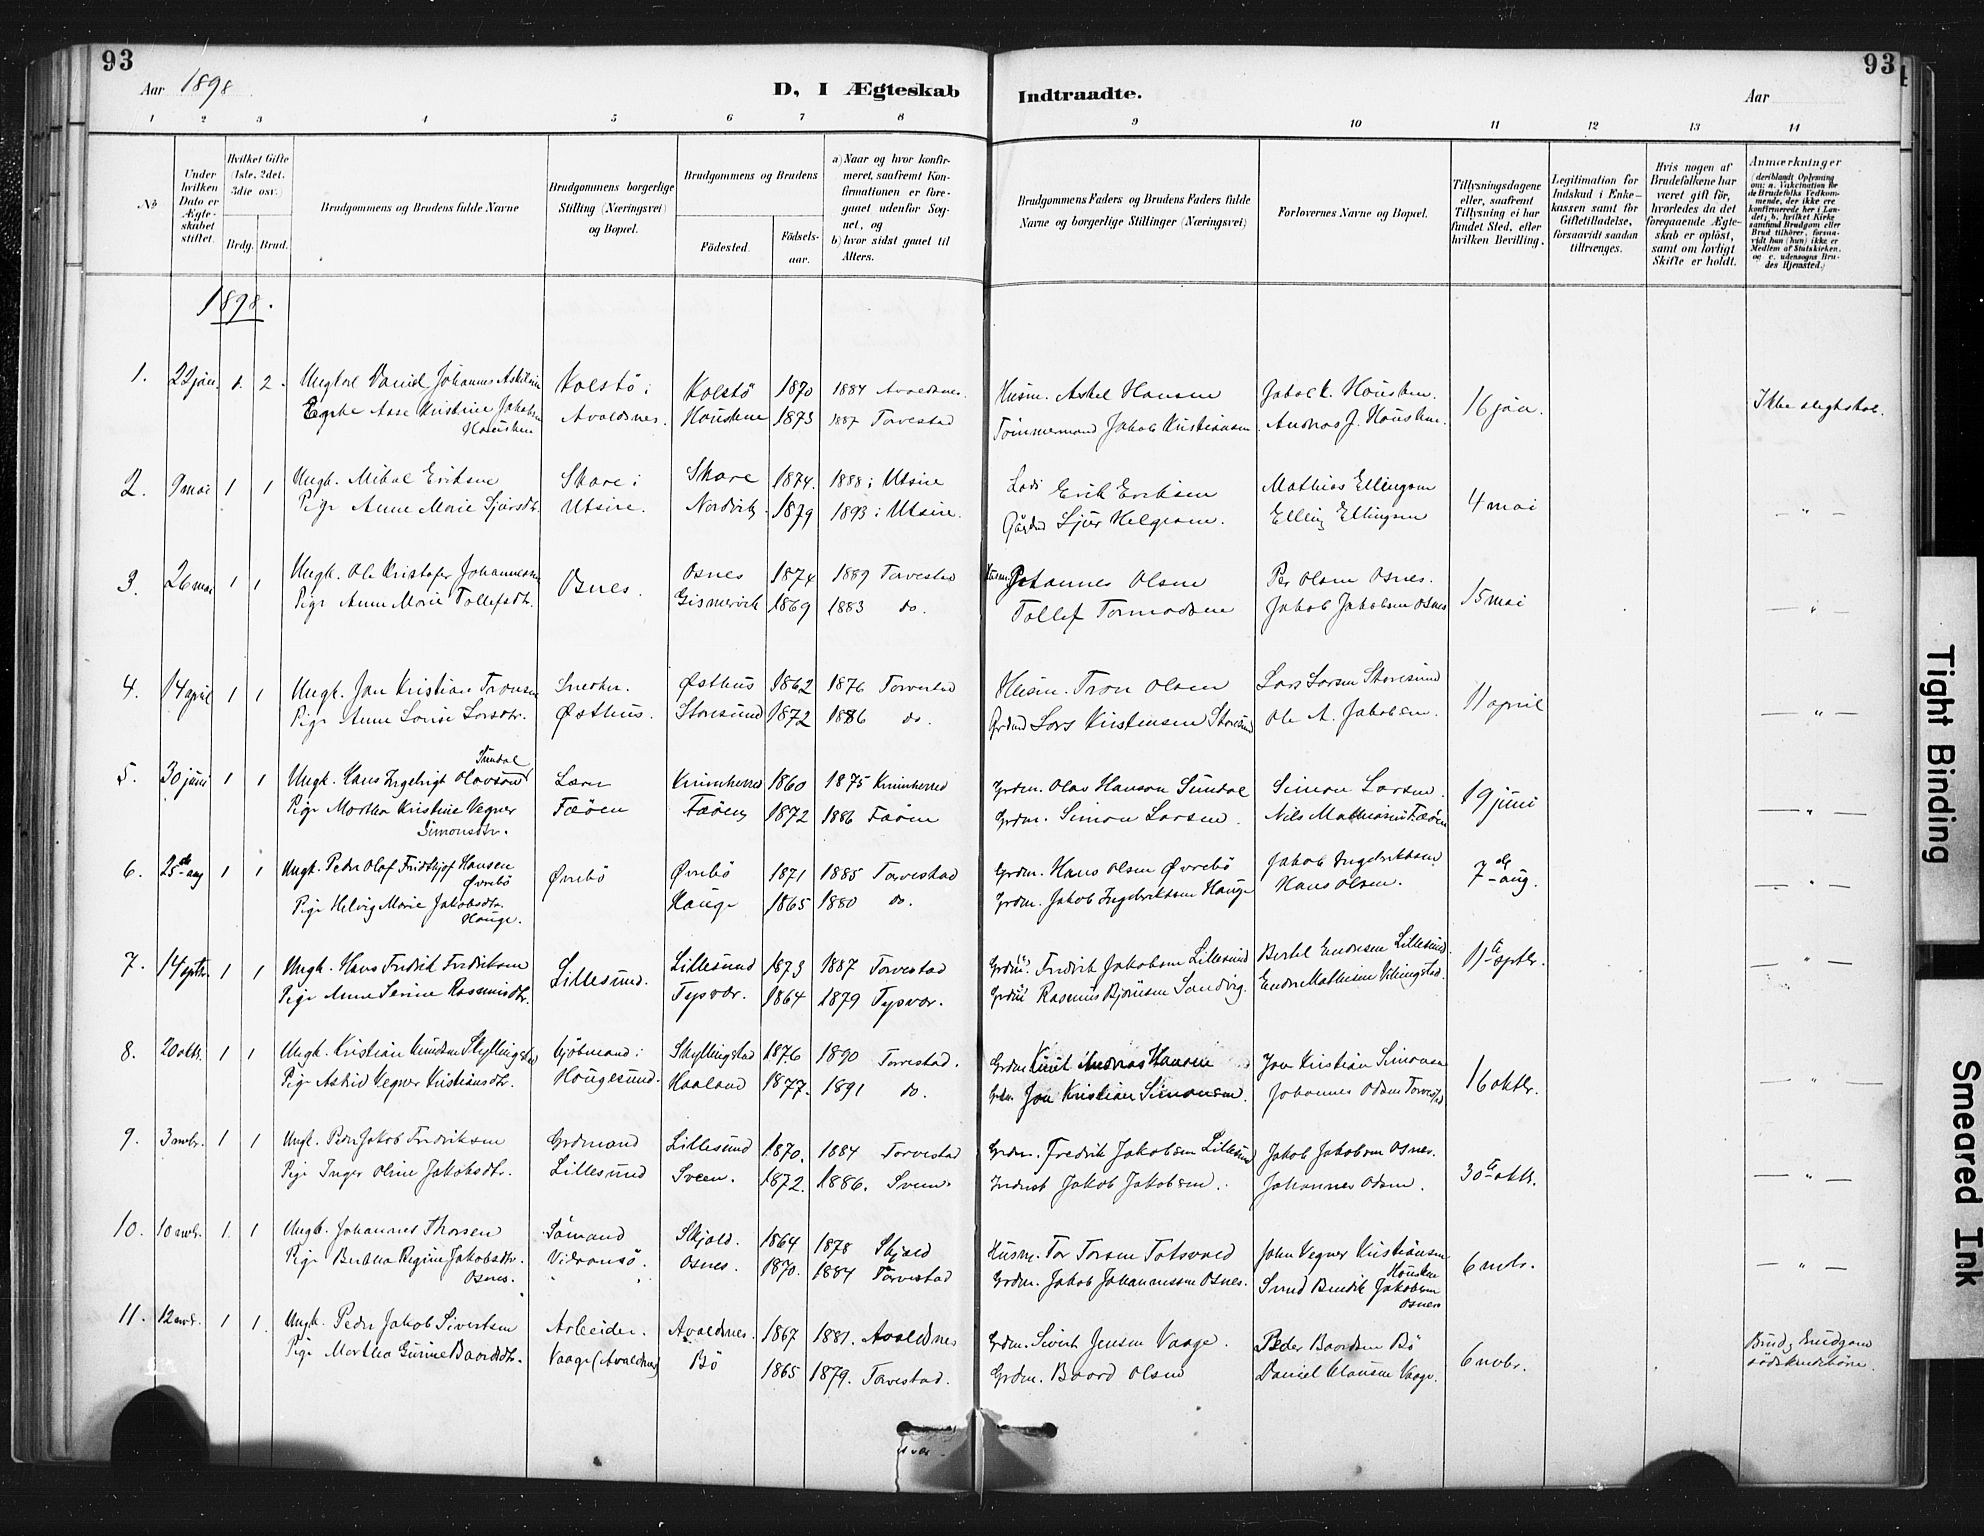 93
Aar 1898
D, I Ægteskab
Indtraadte.
Aar
93
1 2 3 4 5 6 7 8 9 10 11 12 13 14
No
Under hvilken Dato er Ægteskabet stiftet.
Hvilket Gifte (1ste, 2det, 3die osv.)
Brdg. Brud.
Brudgommens og Brudens fulde Navne
Brudgommens borgerlige Stilling (Næringsvei) og Bopæl.
Brudgommens og Brudens
Födested. Födsels-aar.
a) Naar og hvor konfirmeret, saafremt Konfirmationen er foregaaet udenfor Sognet, og
b) hvor sidst gaaet til Alters.
Brudgommens Faders og Brudens Faders fulde Navne og borgerlige Stillinger (Næringsvei)
Forlovernes Navne og Bopæl.
Tillysningsdagene eller, saafremt Tillysning ei har fundet Sted, efter hvilken Bevilling.
Legitimation for Indskud i Enkekassen samt for Giftetilladelse, forsaavidt saadan tiltrænges.
Hvis nogen af Brudefolkene har været gift för, hvorledes da det foregaaende Ægteskab er oplöst, samt om lovligt Skifte er holdt.
Anmærkninger
(deriblandt Oplysning om: a. Vakcination for de Brudefolks Vedkommende, der ikke ere konfirmerede her i Landet; b. hvilket Kirkesamfund Brudgom eller Brud tilhörer, forsaavidt han (hun) ikke er Medlem af Statskirken, og c. udensogns Brudes Hjemsted.)
1898.
1. 22 jan. 1. 2. Ungkarl Daniel Johannes Askilsen Kolstö i Kolstö 1870 1884 Avaldsnes. Husm. Askel Hansen Jakob K. Housken. 16 jan. Ikke slegtskab.
Enke Ane Kristine Jakobsen Housken Avaldsnes. Housken 1873 1887 Torvestad Tømmermand Jakob Kristiansen Andreas J. Housken.
2. 9 mai 1 1 Ungk. Mikal Eriksen Skare i Skare 1874. 1888 i Utsire Lods Erik Eriksen Mathias Ellingsen 4 mai — " —
Pige Anne Marie Sjursdtr. Utsire. Nordvik. 1879 1893 i Utsire. Gårdm Sjur Helgesen. Elling Ellingsen
3. 26 mai 1 1 Ungk. Ole Kristofer Johannessen Osnes. Osnes 1874 1889 Torvestad Husm. Johannes Olsen Per Olsen Osnes. 15 mai — " —
Pige Anne Marie Tollefsdtr. Gismervik 1869 1883 do. Tollef Tormodsen Jakob Jakobsen Osnes
4. 14 april 1 1 Ungk. Jan Kristian Tronsen Snedker. Østhus 1862 1876 Torvestad Husm. Tron Olsen Lars Larsen Storesund 11 april — " —
Pige Anne Lovise Larsdtr. Østhus. Storesund 1872 1886 do. Grdmd Lars Kristensen Storesund Ole A. Jakobsen.
5. 30 juni 1 1 Ungk. Hans Ingebrigt Olavson Sundal Lærer Kvinnherred 1860 1875 Kvinnherred Grdm. Olav Hanson Sundal Simon Larsen. 19 juni — " —
Pige Martha Kristine Vegner Simonsdtr. Fæöen Fæöen 1872 1886 Fæöen Grdm. Simon Larsen. Nils Mathiasen Fæöen
6. 25de aug 1 1 Ungk. Peder Olaf Fridthjof Hansen Øvrebö Øvrebö Øvrebö 1871 1885 Torvestad Grdm. Hans Olsen Øvrebö Jakob Ingebriktsen 7de aug. — " —
Pige Helvig Marie Jakobsdtr. Hauge. Hauge 1865 1880 do. Grdm. Jakob Ingebriktsen Hauge Hans Olsen.
7. 14 septbr 1 1 Ungk. Hans Fredrik Fredriksen Lillesund. Lillesund 1873 1887 Torvestad Grdm. Fredrik Jakobsen Lillesund Bertel Endresen Lillesund. 11te septbr. — " —
Pige Anne Serine Rasmusdtr. Tysvær. 1864 1879 Tysvær. Grdm Rasmus Bjørnsen Sandvig. Endre Mathesen Vikingstad.
8. 20 oktbr. 1 1 Ungk. Kristian Knudsen Skyllingstad Kjöbmand i Skyllingstad 1876 1890 Torvestad. Grdm Knut Andreas Hansen Jan Kristian Simonsen 16 oktbr. — " —
Pige Astrid Vegner Kristiansdtr. Hougesund. Haaland 1877. 1891 do. Grdm. Jan Kristian Simonsen. Johannes Odsen Torvestad
9. 3 novbr. 1 1 Ungk. Peder Jakob Fredriksen Grdmand Lillesund 1870. 1884 Torvestad Grdm. Fredrik Jakobsen Lillesund Jakob Jakobsen Osnes. 30te oktbr. — " —
Pige Inger Oline Jakobsdtr. Lillesund Sveen. 1872. 1886. Sveen. Inderst Jakob Jakobsen. Johannes Odsen.
10. 10 novbr. 1. 1 Ungk. Johannes Thorsen Sömand Skjold. 1864 1878 Skjold Husm. Tor Torsen John Vegner Kristiansen Housken 6 novbr. — " —
Pige Berthea Regine Jakobsdtr. Osnes. Vibransö. Osnes. 1870. 1884 Torvestad Grdm. Jakob Johannessen Osnes. Svend Bendik Jakobsen Osnes
11. 12 novbr. 1 1. Ungk. Peder Jakob Sivertsen Arbeider. Avaldsnes. 1867 1881. Avaldsnes Grdm. Sivert Jensen Vaage. Peder Baardsen Bö 6 novbr. Brud og Brudgom södskendebörn.
Pige Martha Gurine Baardsdtr. Vaage (Avaldsnes) Bö 1865 1879. Torvestad. Grdm. Baard Olsen Daniel Clausen Vaage.
Tight Binding
Smeared Ink